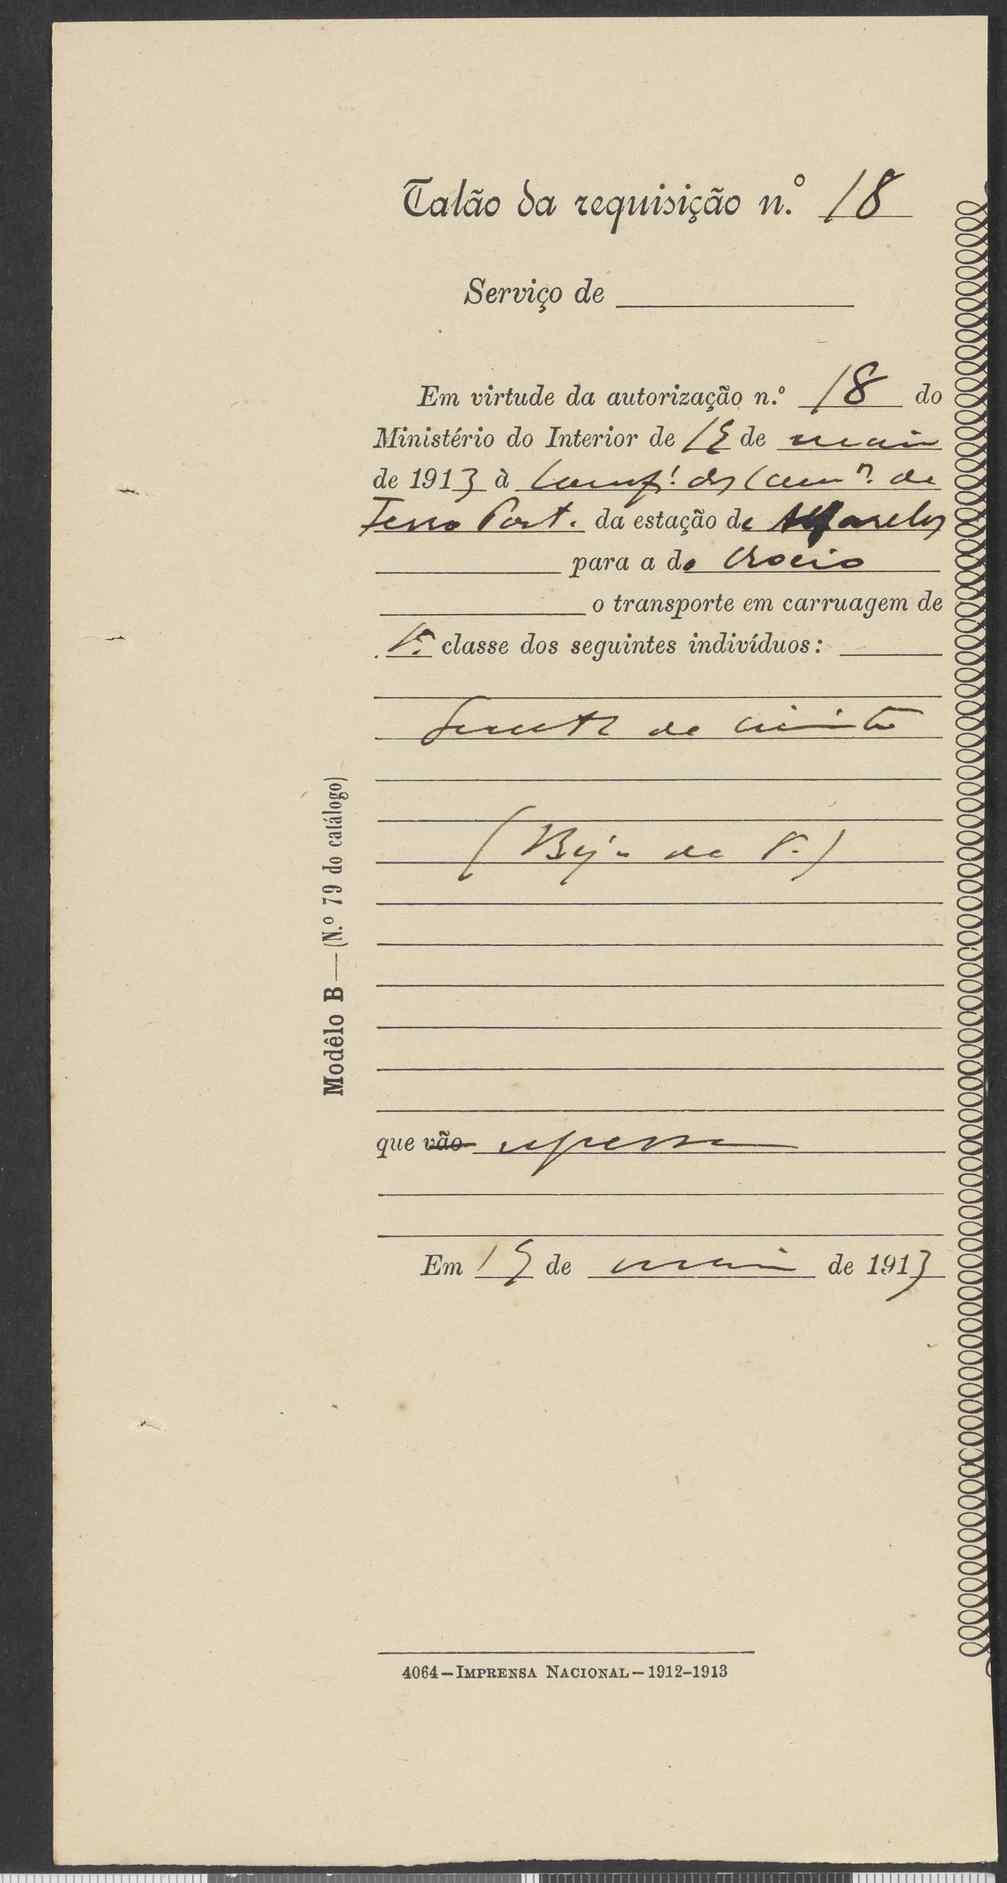 Talão da requisição n.º 18
Serviço de
Em virtude da autorização n.º 18 do
Ministério do Interior de 15 de maio
de 1913 à Comp.ª dos Cam.os de
Ferro Port. da estação de Alfarelos
para a do Rocio
o transporte em carruagem de
1ª classe dos seguintes indivíduos:
de
de 1ª)
que vão regressa
Em 15 de maio de 1913
Modêlo B—(N.º 79 do catálogo)
4064—Imprensa Nacional—1912-1913